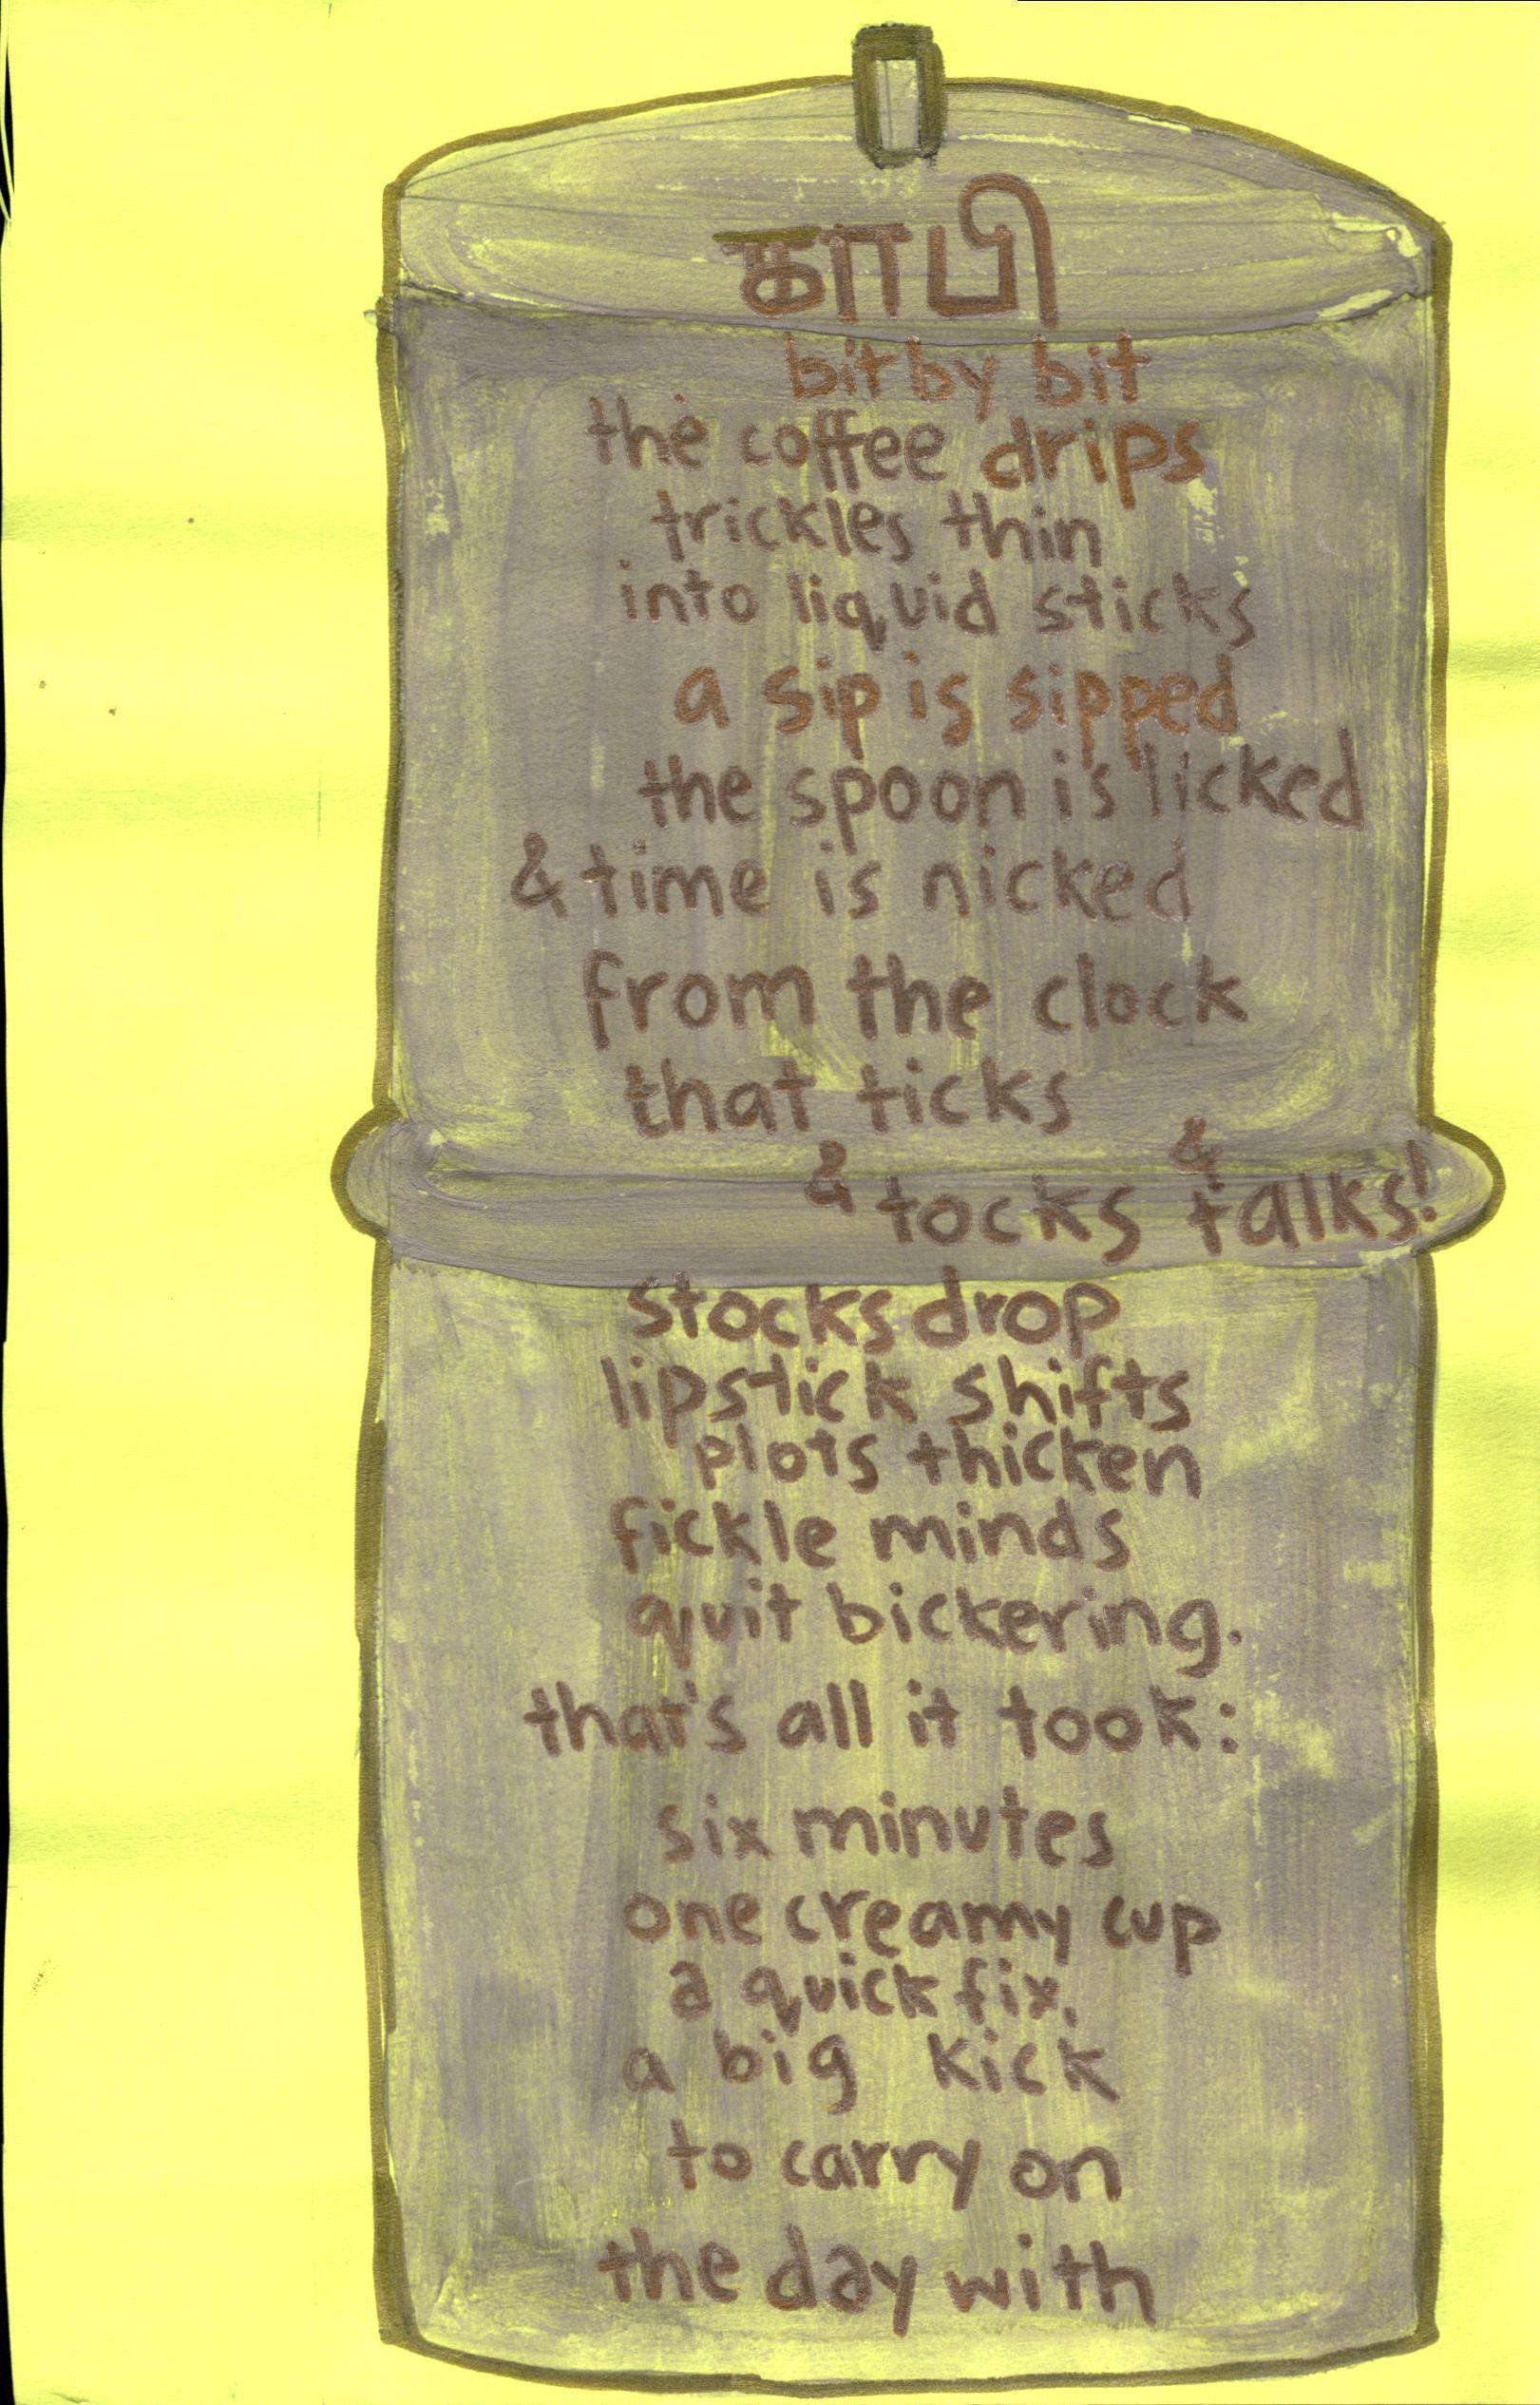 காபி
bit by bit
the coffee drips
trickles thin
into liquid sticks
a sip is sipped
the spoon is licked
& time is nicked
from the clock
that ticks
& tocks & talks!
stocks drop
lipstick shifts
plots thicken
fickle minds
quit bickering.
that's all it took:
six minutes
one creamy cup
a quick fix,
a big kick
to carry on
the day with